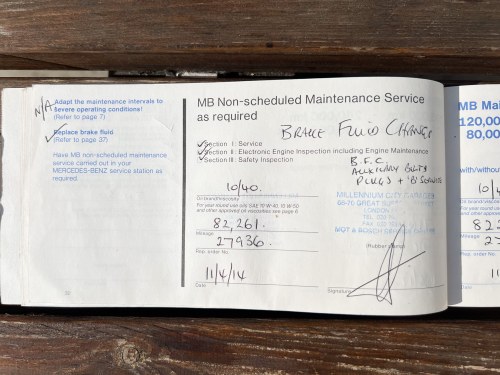 N/A
Adapt the maintenance intervals to
Severe operating conditions!
(Refer to page 7)
Replace brake fluid
(Refer to page 37)
Have MB non-scheduled maintenance
service carried out in your
MERCEDES-BENZ service station as
required.
MB Non-scheduled Maintenance Service
as required
BRAKE FLUID CHANGE
Section I : Service
Section II : Electronic Engine Inspection including Engine Maintenance
Section III : Safety Inspection
B.F.C.
AUXILIARY BELTS
PLUGS + 'B' SERVICE
10/40.
Oil brand/viscosity
For year round use SAE 10 W-40, 10 W-50
and other approved oil viscosities see page 6
82,261.
Mileage
27936
Rep. order No.
11/4/14
Date
MILLENNIUM CITY GARAGE
LONDON
MOT & BOSCH
(Rubber stamp)
Signature
MB Mai
120,00
80,000
with/withou
10/4
822
Mileage
27
Rep. order No.
11
Date